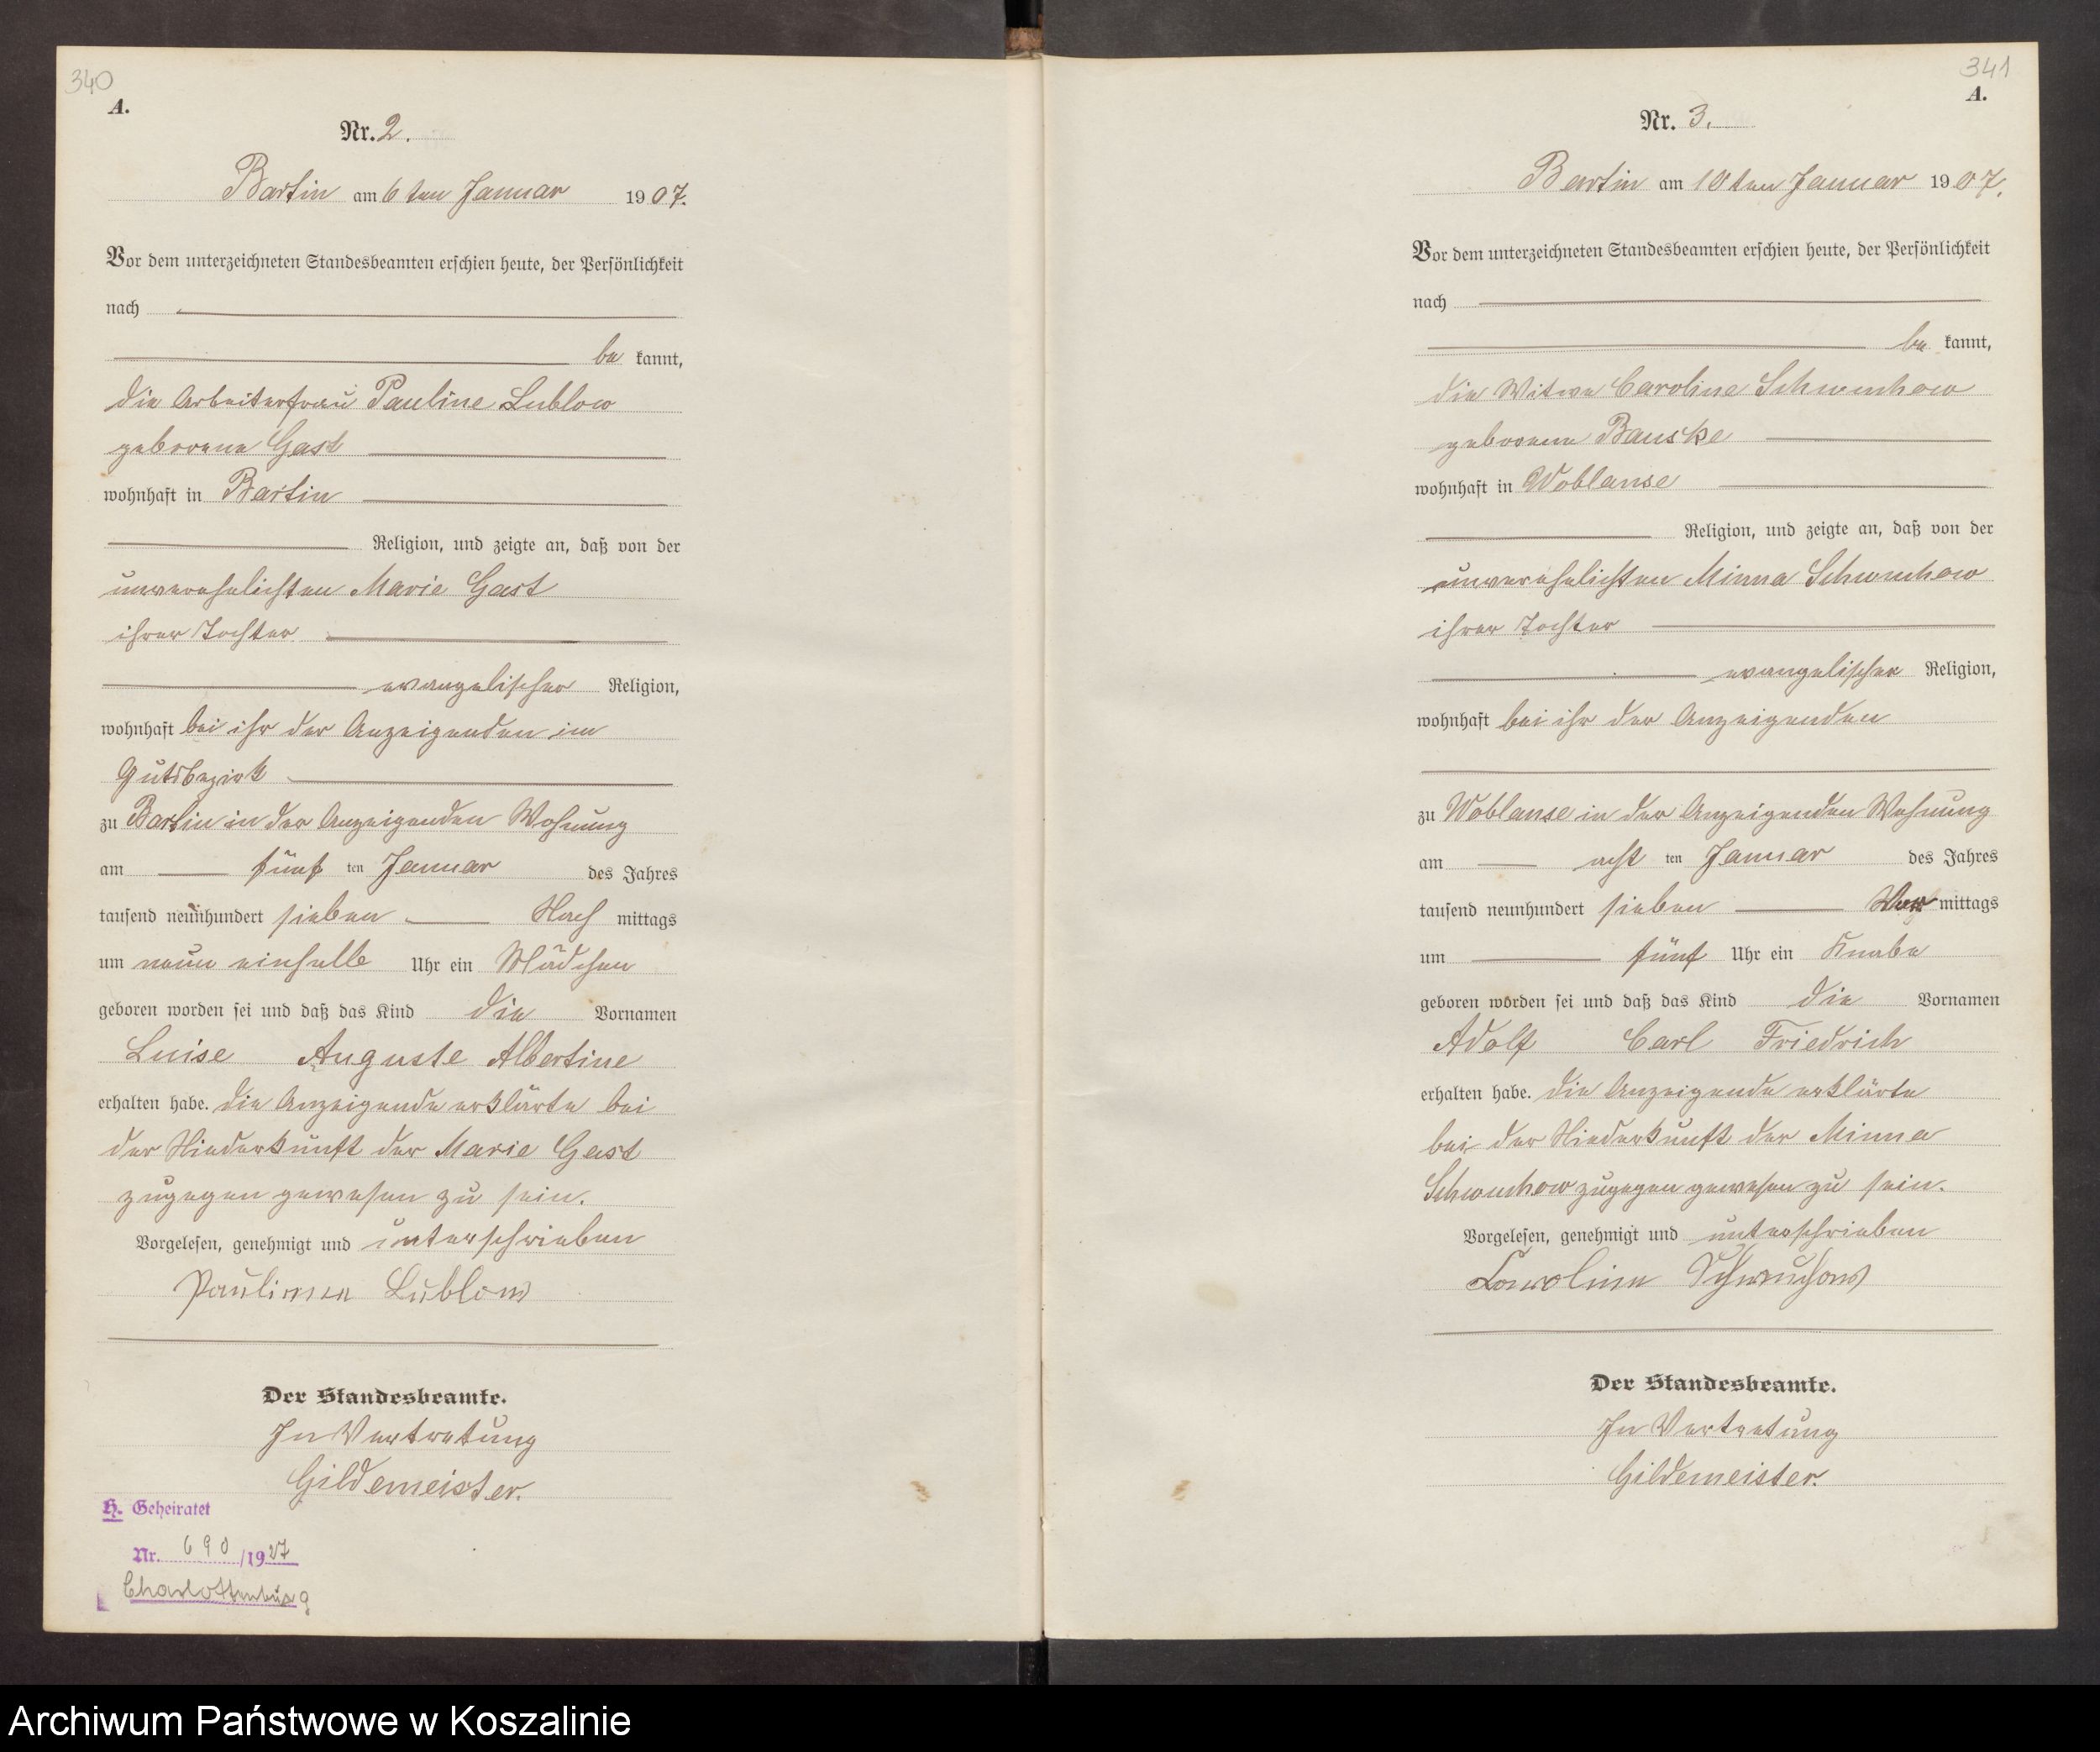 340
A.
Nr. 2.
Bartin am 6ten Januar 1907.
Vor dem unterzeichneten Standesbeamten erschien heute, der Persönlichkeit
nach
be kannt,
die Arbeiterfrau Pauline Lublow
geborene Gast
wohnhaft in Bartin
Religion, und zeigte an, daß von der
unverehelichten Marie Gast
ihrer Tochter
evangelischer Religion,
wohnhaft bei ihr der Anzeigenden im
Gutsbezirk
zu Bartin in der Anzeigenden Wohnung
am fünf ten Januar des Jahres
tausend neunhundert sieben Nach mittags
um neun einhalb Uhr ein Mädchen
geboren worden sei und daß das Kind die Vornamen
Luise Auguste Albertine
erhalten habe. Die Anzeigende erklärte bei
der Niederkunft der Marie Gast
zugegen gewesen zu sein.
Vorgelesen, genehmigt und unterschrieben
Lublow
Der Standesbeamte.
In Vertretung
Gildemeister.
H. Geheiratet
Nr. 690/1927
Charlottenburg
341
A.
Nr. 3.
Bartin am 10ten Januar 1907.
Vor dem unterzeichneten Standesbeamten erschien heute, der Persönlichkeit
nach
be kannt,
die Witwe Caroline Schwuchow
geborene Bauske
wohnhaft in Woblanse
Religion, und zeigte an, daß von der
unverehelichten Minna Schwuchow
ihrer Tochter
evangelischer Religion,
wohnhaft bei ihr der Anzeigenden
zu Woblanse in der Anzeigenden Wohnung
am acht ten Januar des Jahres
tausend neunhundert sieben Vor mittags
um fünf Uhr ein Knabe
geboren worden sei und daß das Kind die Vornamen
Adolf Carl Friedrich
erhalten habe. Die Anzeigende erklärte
bei der Niederkunft der Minna
Schwuchow zugegen gewesen zu sein.
Vorgelesen, genehmigt und unterschrieben
Schwuchow
Der Standesbeamte.
In Vertretung
Gildemeister.
Archiwum Państwowe w Koszalinie